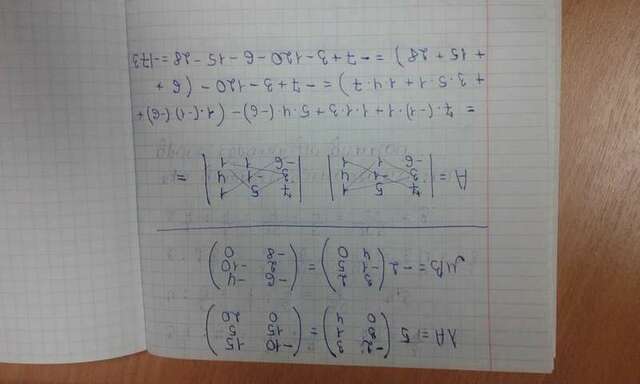 λA = 5 ( -2 3 ; 3 1 ; 0 4 ) = ( -10 15 ; 15 5 ; 0 20 )
μB = -2 ( 3 2 ; -1 5 ; 4 0 ) = ( -6 -4 ; 2 -10 ; -8 0 )
A = | 7 5 1 ; 3 -1 4 ; -6 1 1 | | 7 5 1 ; 3 -1 4 ; -6 1 1 | =
= 7·(-1)·1+1·1·3+5·4·(-6)-(1·(-1)(-6)+
+3·5·1+1·4·7)=-7+3-120-(6+
+15+28)=-7+3-120-6-15-28=-173